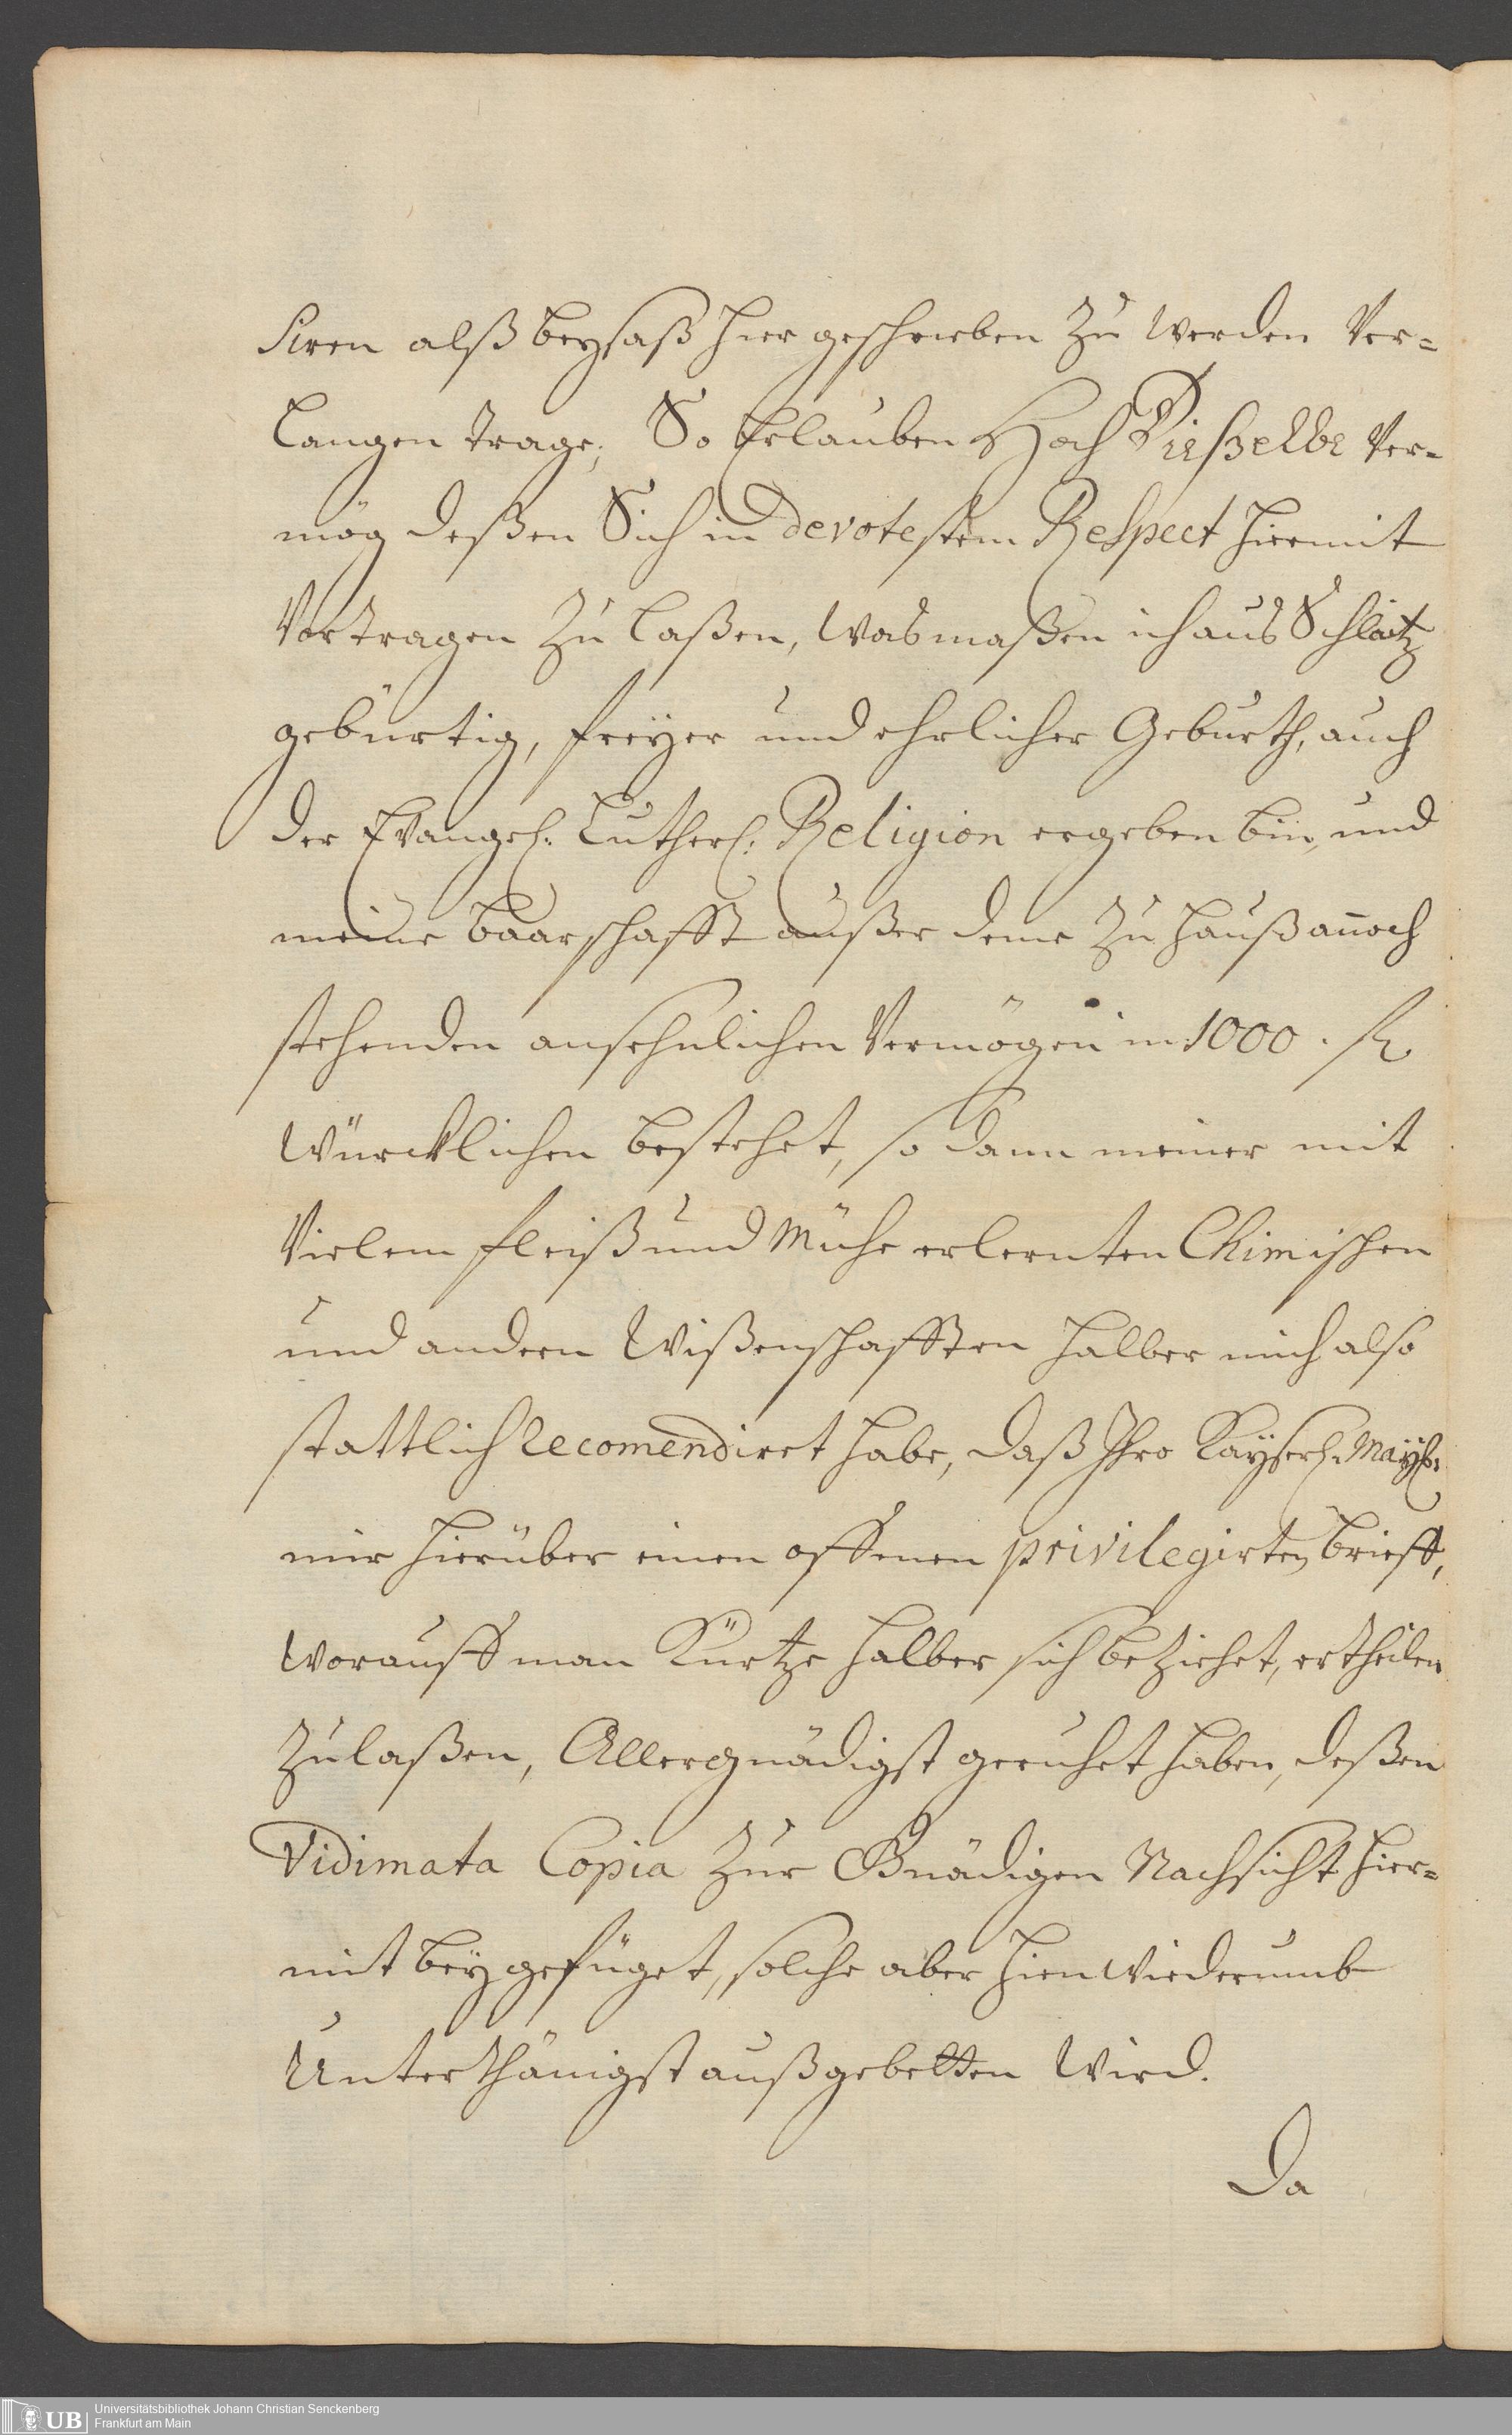 siren alß beysaß hier geschrieben zu werden Ver-
langen trage; So Erlauben Hoch Dieselbe Ver-
mög deßen Sich in devotestem Respect hiermit
Vortragen zu laßen, Was maßen ich aus Schlaitz
gebürtig, freyer und ehrlicher Geburth, auch
der Evangel: Lutherl: Religion ergeben bin, und
meine baarschafft außer deme zu Hauß annoch
stehenden ansehnlichen Vermögen in 1000. fl
Würcklichen bestehet, so dann meiner mit
Vielem fleiß und Mühe erlernten Chimischen
und andern Wißenschafften halber mich also
stattlich recomendiret habe, daß Ihro Kayserl: May:
mir hierüber einen offenen privilegirten brieff,
worauff man Kürtze halber sich beziehet, ertheilen
zulaßen, Allergnädigst geruhet haben, deßen
Vidimata Copia zur Gnädigen Nachsicht hier-
mit beygefüget, solche aber hienwiederumb
Unterthänigst außgebetten Wird.
Da
UB Universitätsbibliothek Johann Christian Senckenberg
Frankfurt am Main